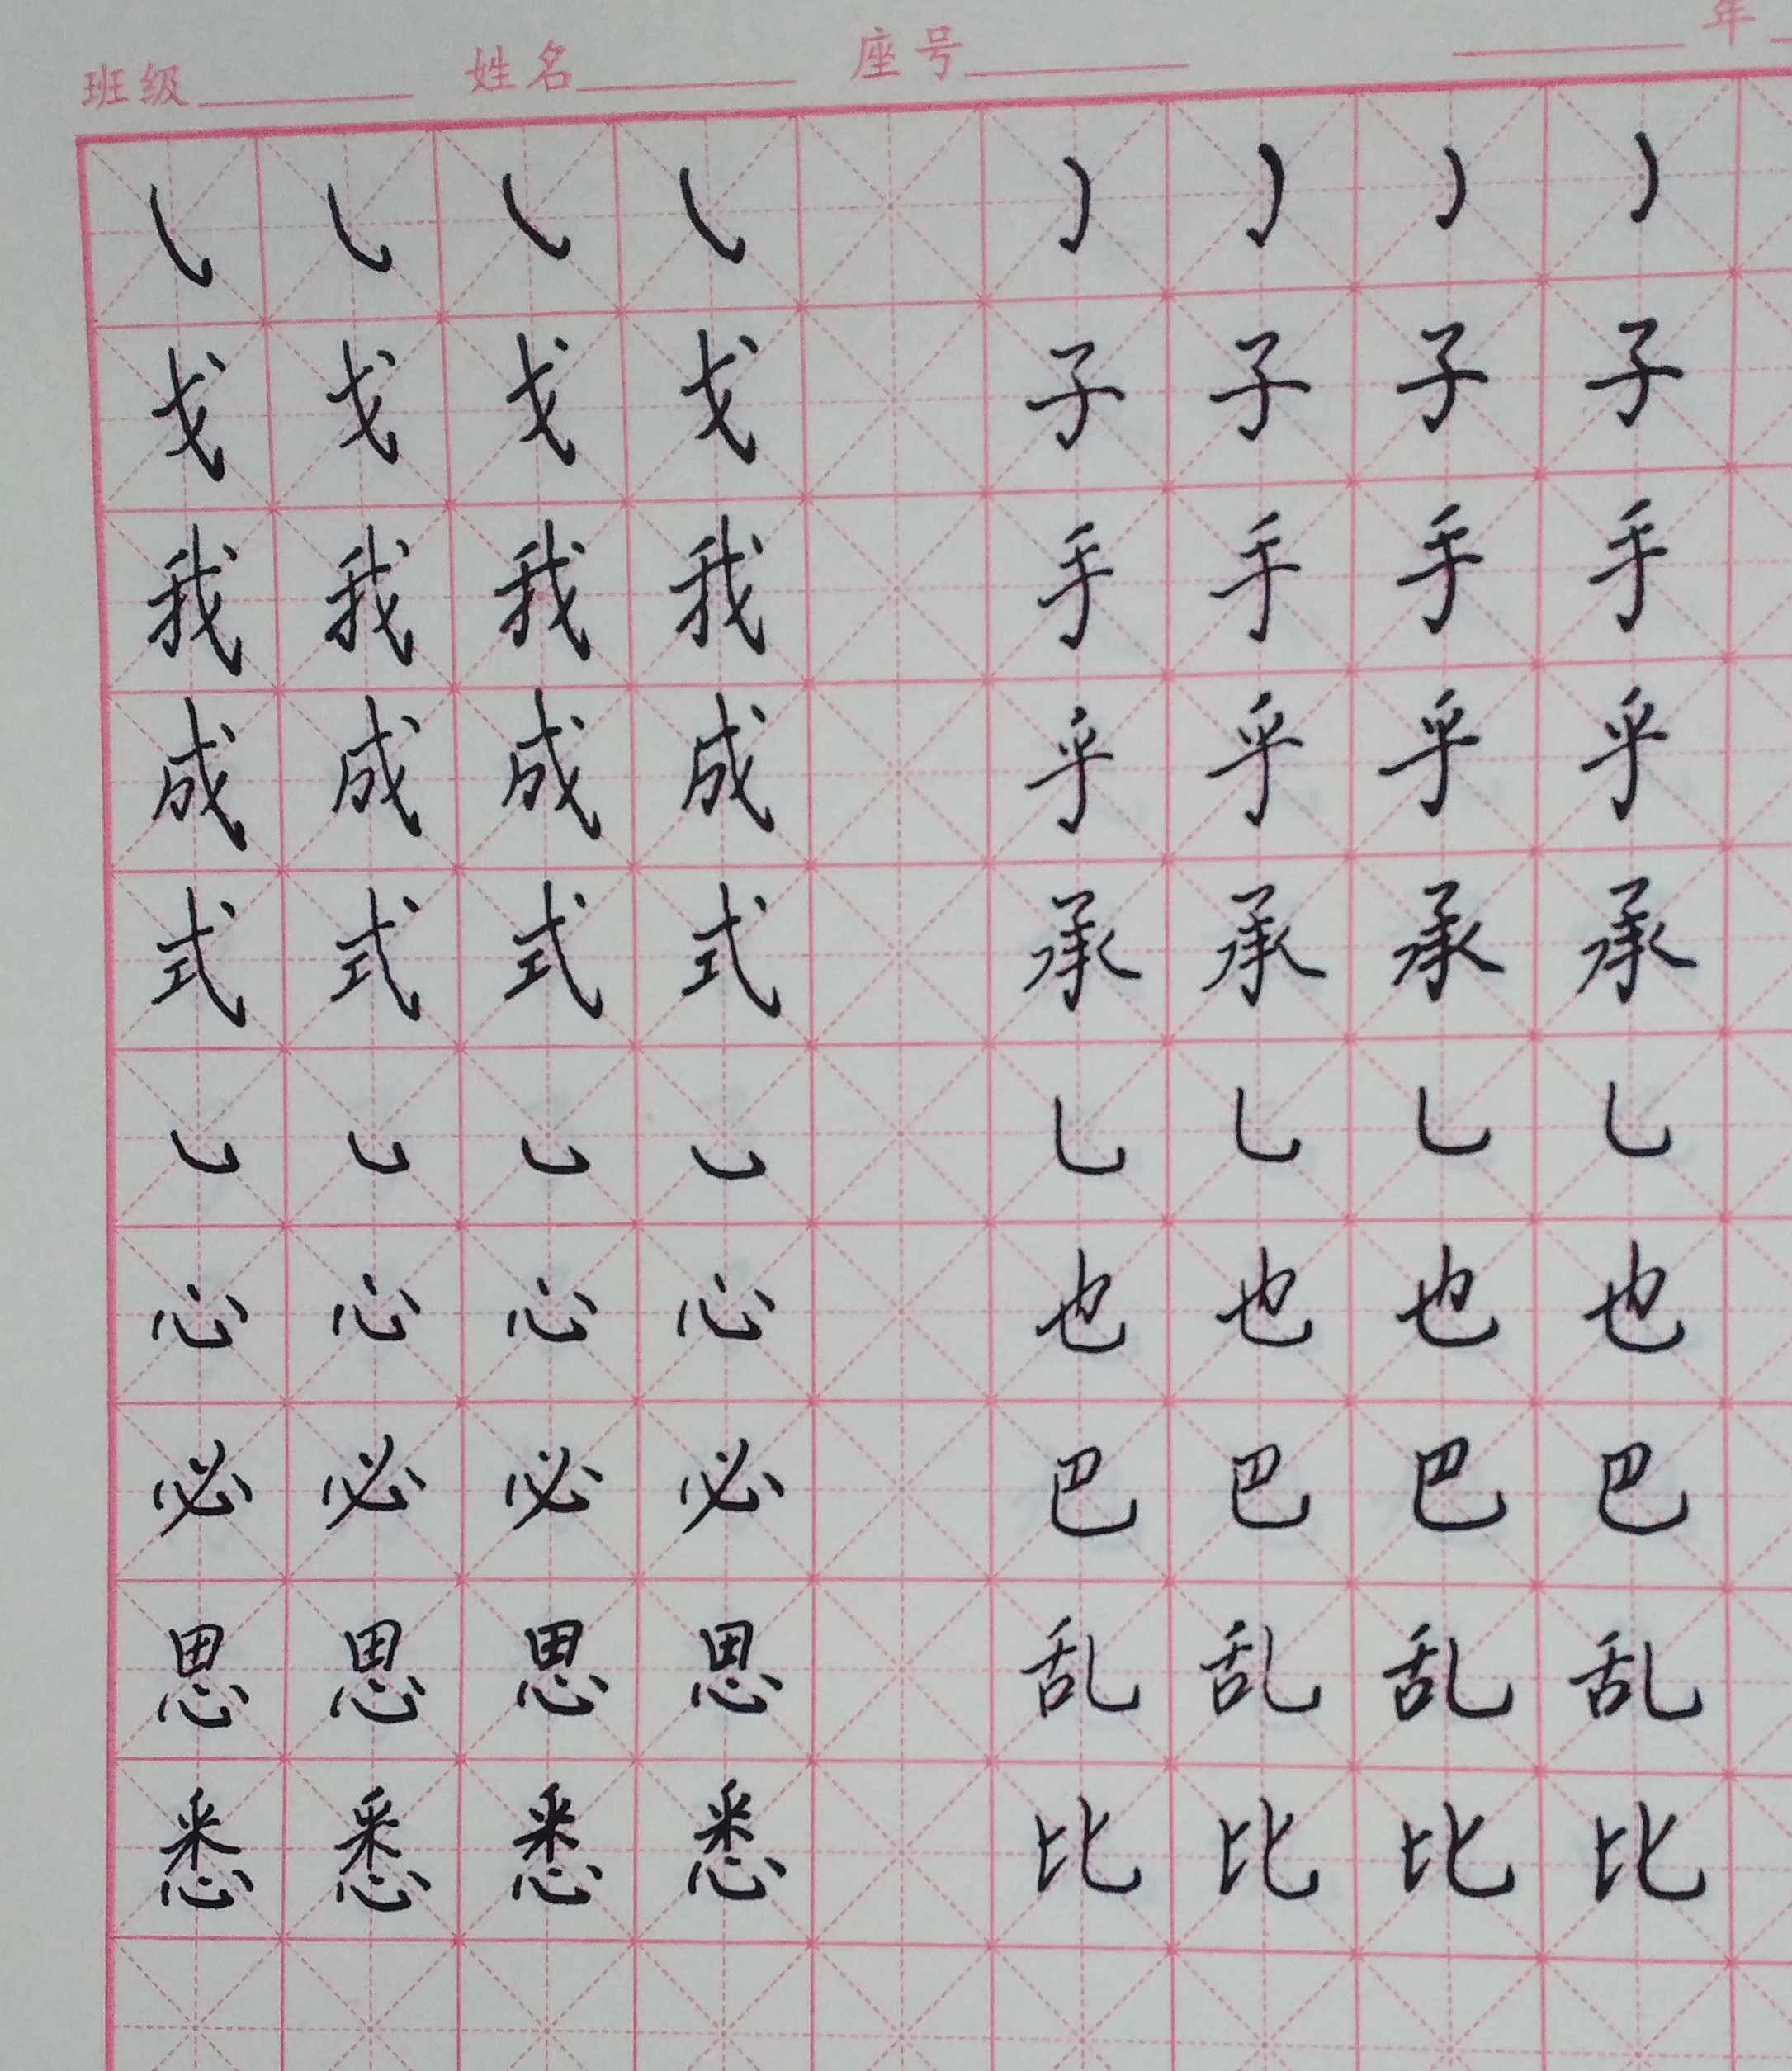 班级 姓名 座号 年
㇂ ㇂ ㇂ ㇂ ㇁ ㇁ ㇁ ㇁
戈 戈 戈 戈 子 子 子 子
我 我 我 我 手 手 手 手
成 成 成 成 乎 乎 乎 乎
式 式 式 式 承 承 承 承
㇃ ㇃ ㇃ ㇃ ㇟ ㇟ ㇟ ㇟
心 心 心 心 也 也 也 也
必 必 必 必 巴 巴 巴 巴
思 思 思 思 乱 乱 乱 乱
悉 悉 悉 悉 比 比 比 比